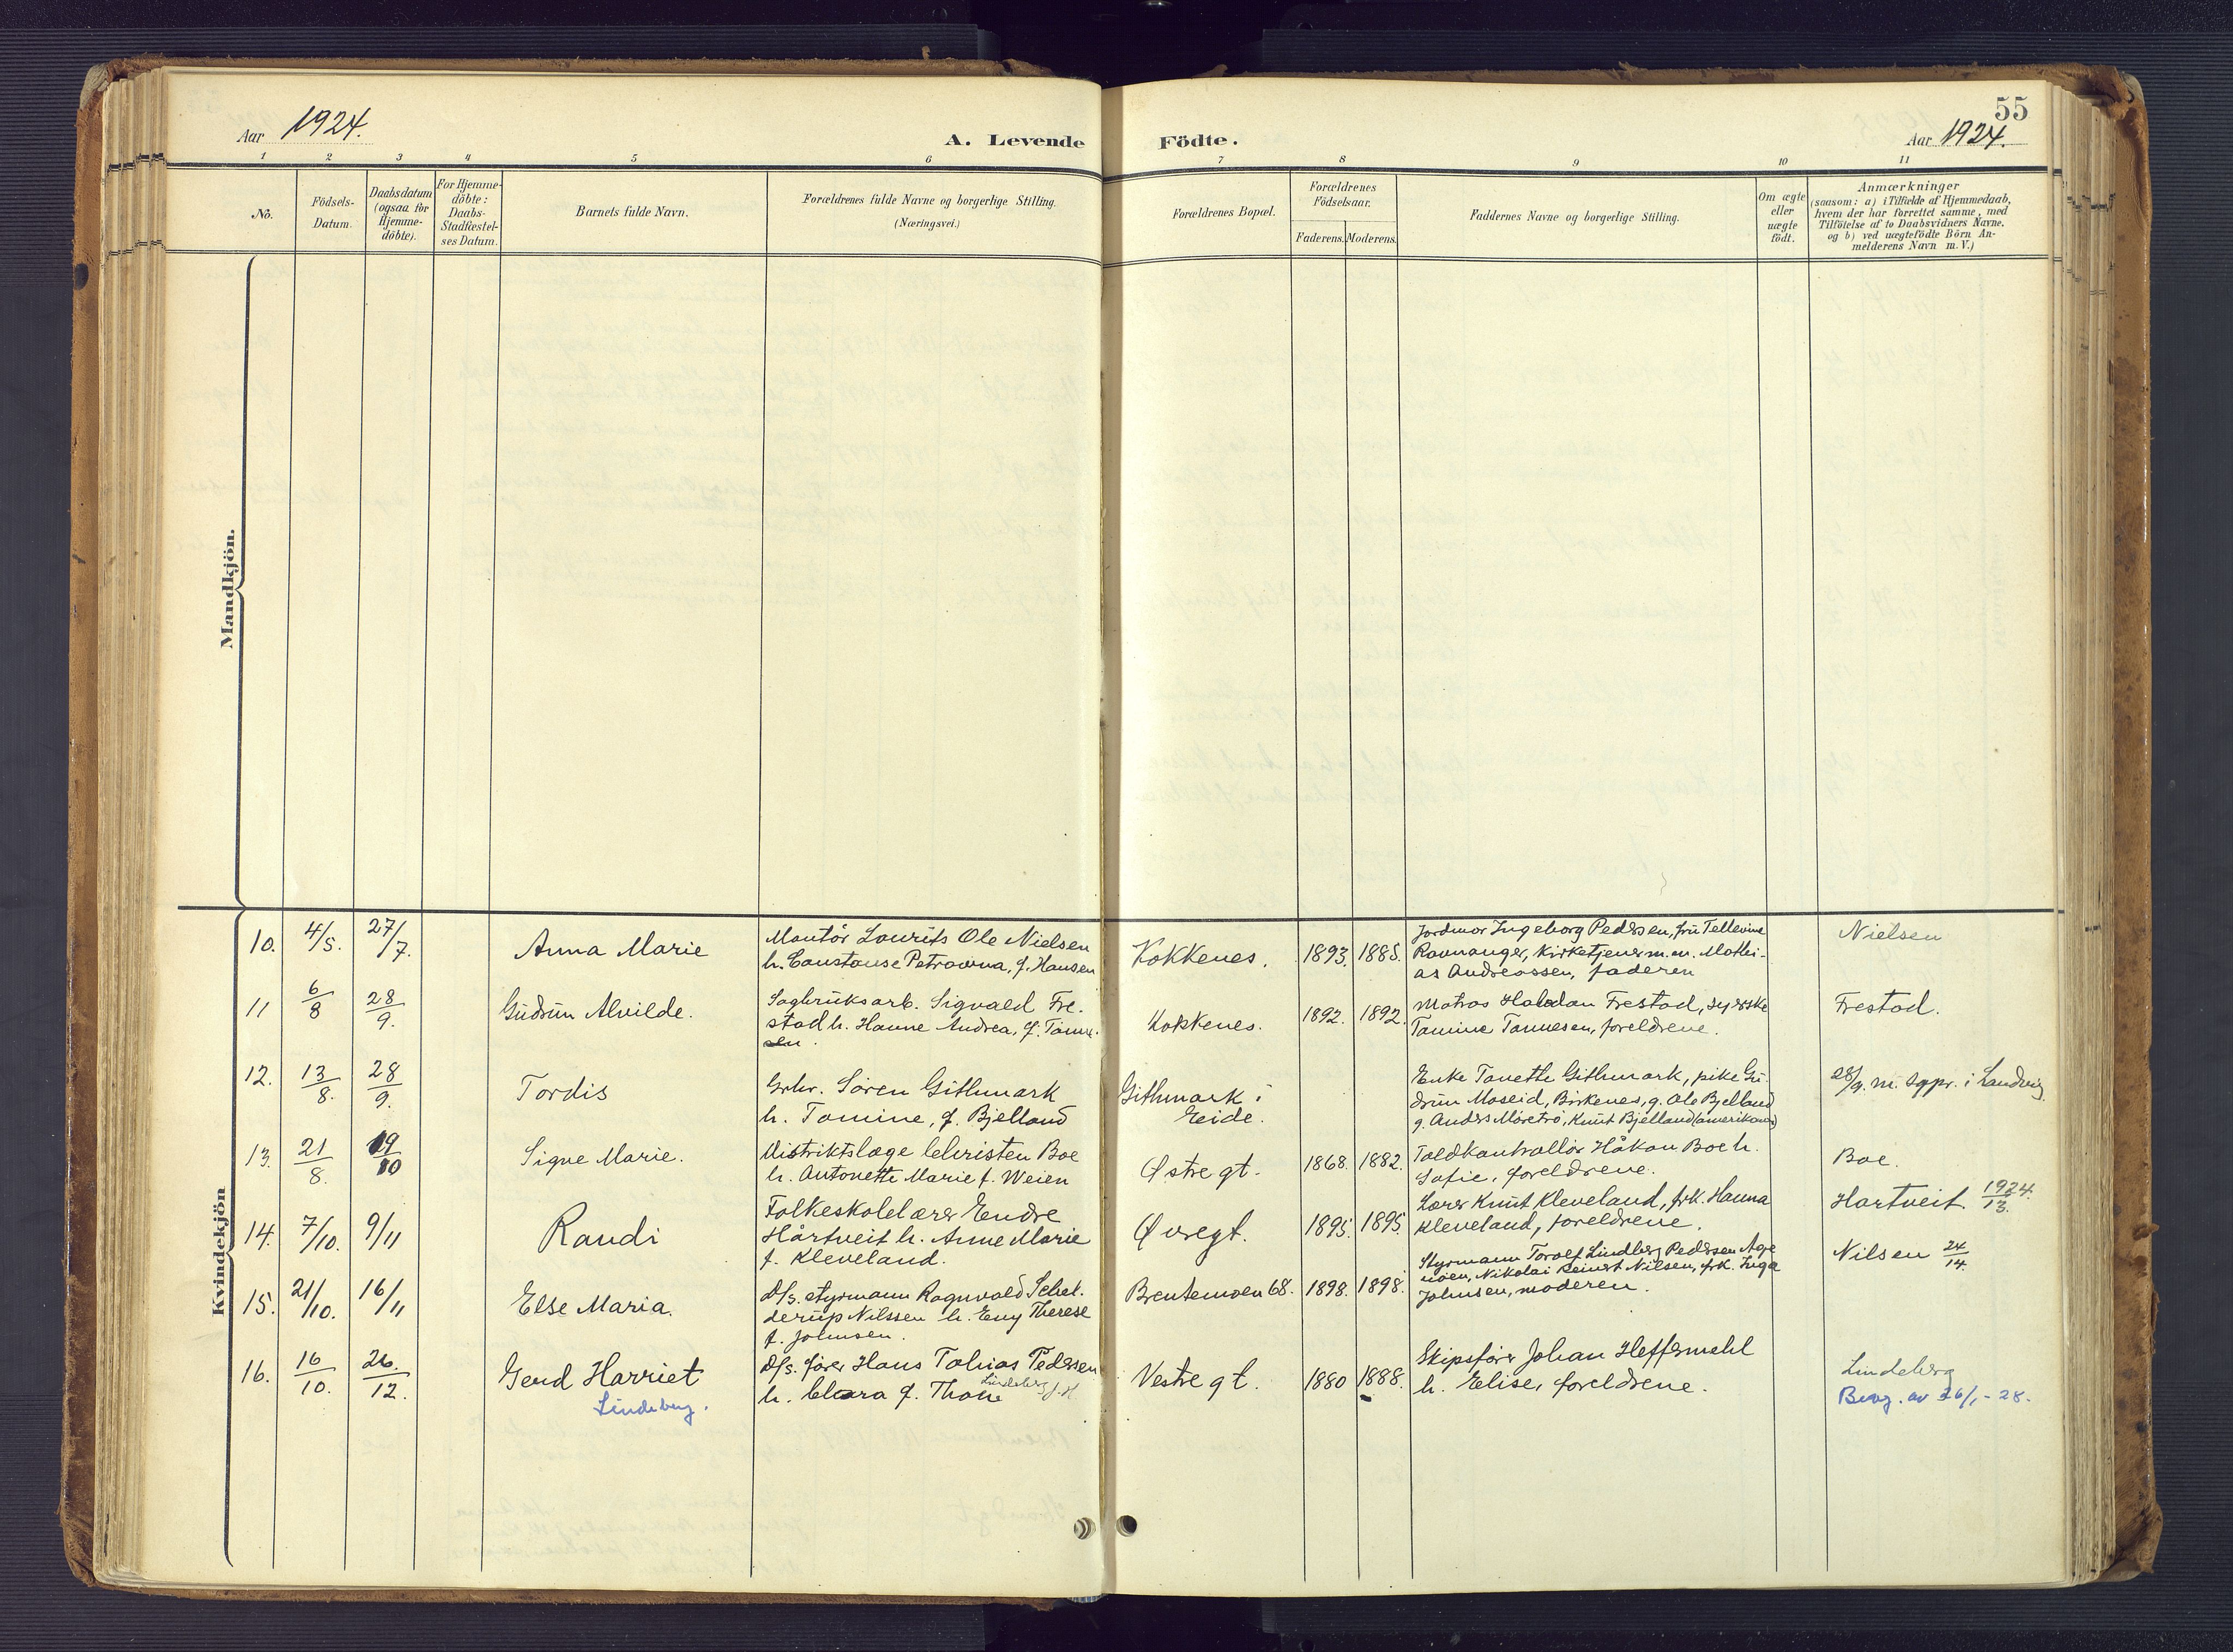 55
Aar 1924.
A. Levende Födte.
Aar 1924.
1 2 3 4 5 6 7 8 9 10 11
No.
Födsels-
Datum.
Daabsdatum
(ogsaa for
Hjemme-
döbte).
For Hjemme-
döbte:
Daabs-
Stadfæstel-
ses Datum.
Barnets fulde Navn.
Forældrenes fulde Navne og borgerlige Stilling.
(Næringsvei.)
Forældrenes Bopæl.
Forældrenes
Födselsaar.
Faderens. Moderens.
Faddernes Navne og borgerlige Stilling.
Om ægte
eller
uægte
födt.
Anmærkninger
(saasom: a) i Tilfælde af Hjemmedaab,
hvem der har forrettet samme, med
Tilföielse af to Daabsvidners Navne.
og b) ved uægtefödte Börn An-
melderens Navn m.V.)
Mandkjön.
Kvindekjön
10. 4/5. 27/7.
Anna Marie
Montör Laurits Ole Nielsen
h. Constanse Petrovna, f. Hansen
Kokkenes.
1893. 1885.
Jordmor Ingeborg Pedersen, fru Tellevine
Ravnanger, Kirketjener m.m. Mathi-
as Andreassen, faderen
Nielsen
11 6/8 28/9.
Gudrun Alvilde.
Sagbruksarb. Sigvald Fre-
stad h. Hanne Andrea, f. Tønne-
sen.
Kokkenes.
1892. 1892.
Matros Halvdan Frestad, syerske
Tomine Tønnesen, foreldrene.
Frestad.
12. 13/8. 28/9.
Tordis
Grbr. Søren Githmark
h. Tomine, f. Bjelland
Githmark i
Eide.
Enke Tonette Githmark, pike Gu-
drun Moseid, Birkenes, g. Ole Bjelland
g. Anders Moretrø, Knut Bjelland (amerikaner)
28/9. m. sgpr. i Landvig
13. 21/8. 19/10
Signe Marie.
Distriktslæge Christen Boe
h. Antonette Marie f. Weien
Østregt.
1868. 1882.
Toldkontrollør Håkon Boe h.
Sofie, foreldrene.
Boe.
14. 7/10. 9/11
Randi
Folkeskolelærer Endre
Hårtveit h. Anne Marie
f. Kleveland.
Øvregt.
1895. 1895.
Lærer Knut Kleveland, frk. Hanna
Kleveland, foreldrene.
Hartveit 1924./13.
15. 21/10. 16/11
Else Maria.
D/s. styrmann Ragnvald Schel-
derup Nilssen h. Eny Therese
f. Johnsen.
Brentemoen 68.
1898. 1898.
Styrmann Torolf Lindberg Pedersen Age
moen, Nikolai Reinert Nilsen, frk. Inga
Johnsen, moderen.
Nilsen 24/14.
16. 16/10. 26./12.
Gerd Harriet
Lindeberg.
D/s. fører Hans Tobias Pedersen
Lindeberg
h. Clara f. Thone
Vestregt.
1880 1888.
Skipsfører Johan Heffermehl
h. Elise, foreldrene.
Lindeberg
Bevg. av 26/1-28.